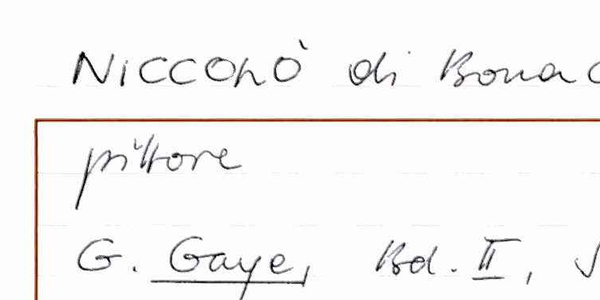 NICCOLÒ di Bonac
pittore
G. Gaye, Bd. II, S